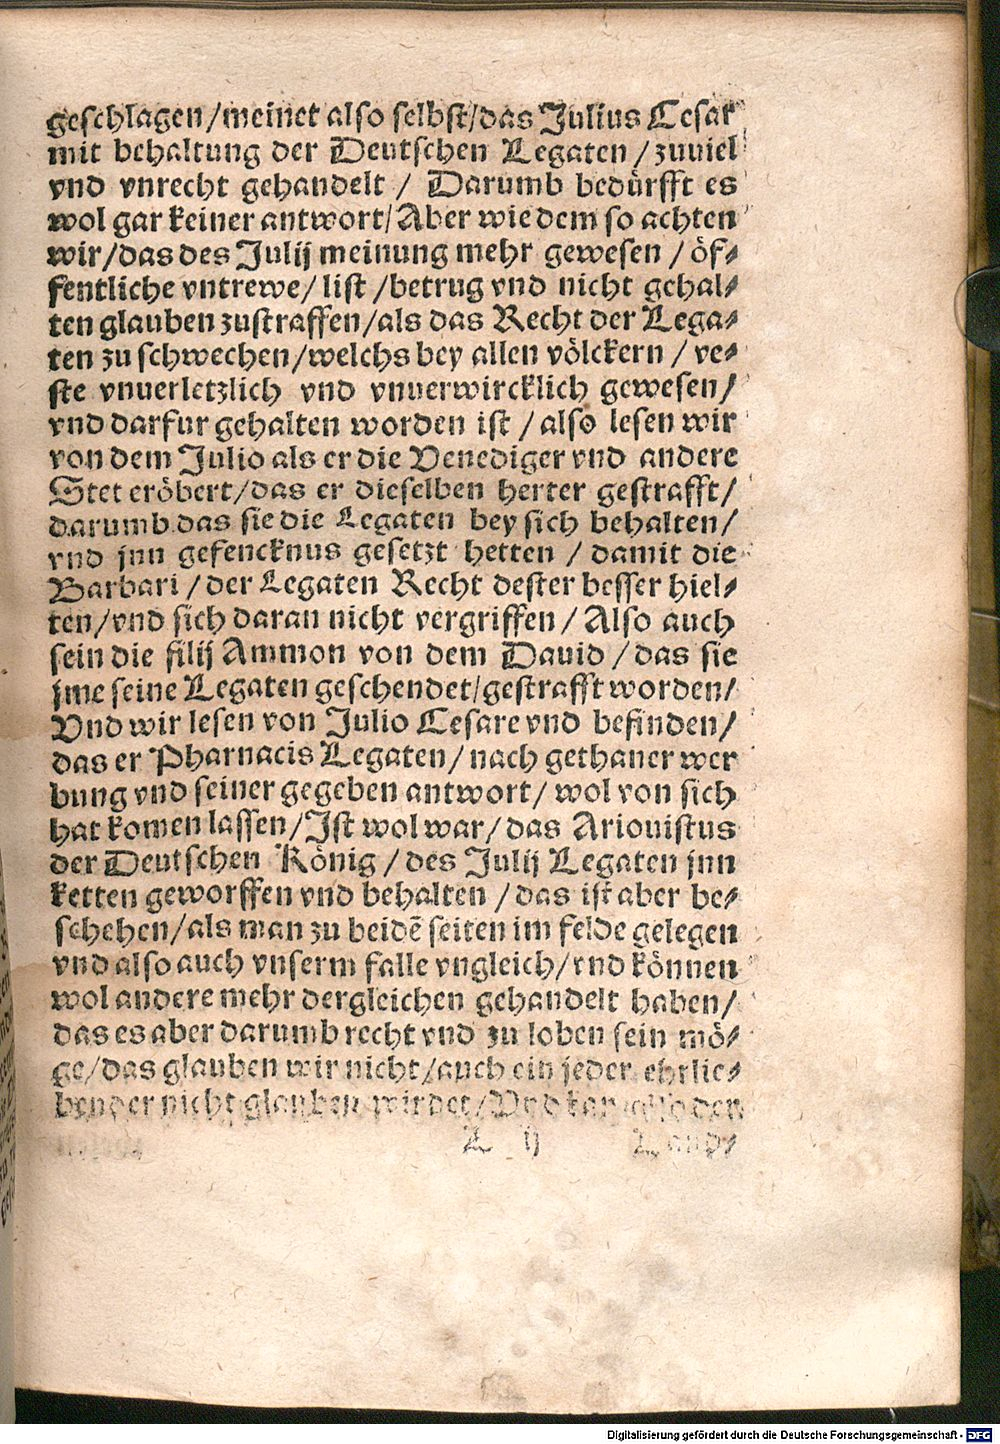 geschlagen/meinet also selbst/das Julius Cesar
mit behaltung der Deutschen Legaten/zuuiel
vnd vnrecht gehandelt/Darumb bedürfft es
wol gar keiner antwort/Aber wie dem so achten
wir/das des Julij meinung mehr gewesen/öf⸗
fentliche vntrewe/list/betrug vnd nicht gehal⸗
ten glauben zustraffen/als das Recht der Lega⸗
ten zu schwechen/welchs bey allen völckern/ve⸗
ste vnuerletzlich vnd vnuerwircklich gewesen/
vnd darfur gehalten worden ist/also lesen wir
von dem Julio als er die Venediger vnd andere
Stet eröbert/das er dieselben herter gestrafft/
darumb das sie die Legaten bey sich behalten/
vnd jnn gefencknus gesetzt hetten/damit die
Barbari/der Legaten Recht dester besser hiel⸗
ten/vnd sich daran nicht vergriffen/Also auch
sein die filij Ammon von dem Dauid/das sie
jme seine Legaten geschendet/gestrafft worden/
Vnd wir lesen von Julio Cesare vnd befinden/
das er Pharnacis Legaten/nach gethaner wer
bung vnd seiner gegeben antwort/wol von sich
hat komen lassen/Ist wol war/das Ariouistus
der Deutschen König/des Julij Legaten jnn
ketten geworffen vnd behalten/das ist aber be⸗
schehen/als man zu beidē seiten im felde gelegen
vnd also auch vnserm falle vngleich/vnd können
wol andere mehr dergleichen gehandelt haben/
das es aber darumb recht vnd zu loben sein mö⸗
ge/das glauben wir nicht/auch ein jeder ehrlie⸗
bender nicht glauben wirdet/Vnd kan also der
L ij Land⸗
Digitalisierung gefördert durch die Deutsche Forschungsgemeinschaft - DFG